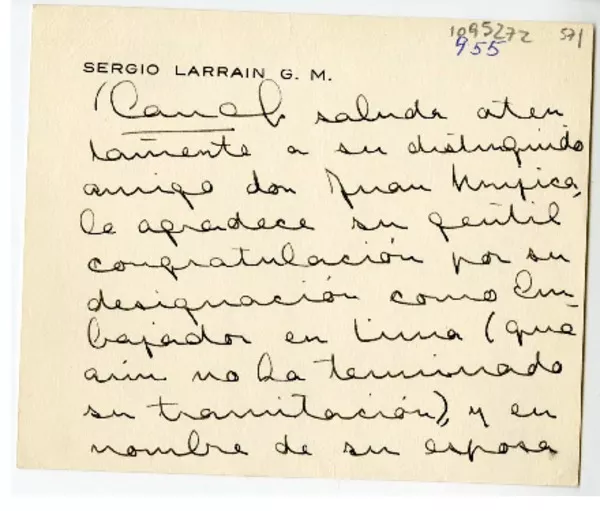 1095272 571
955
SERGIO LARRAIN G. M.
saluda aten
tamente a su distinguido
amigo don Juan Mujica,
le agradece su gentil
congratulación por su
designación como Em-
bajador en Lima (que
aún no ha terminado
su tramitación), y en
nombre de su esposa